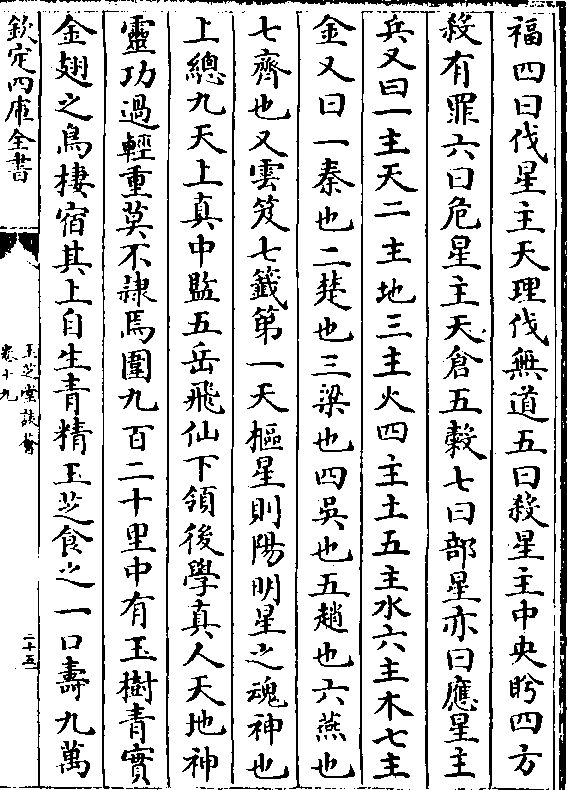 福四曰伐星主天理伐無道五曰殺星主中央盻四方
殺有罪六曰危星主天倉五穀七曰部星亦曰應星主
兵又曰一主天二主地三主火四主土五主水六主木七主
金又曰一秦也二楚也三梁也四吳也五趙也六燕也
七齊也又雲笈七籤第一天樞星則陽明星之魂神也
上總九天上真中監五岳飛仙下領後學真人天地神
靈功過輕重莫不隷焉圍九百二十里中有玉樹青實
金翅之鳥棲宿其上自生青精玉芝食之一口壽九萬
欽定四庫全書
玉芝堂談薈
卷十九
二十五